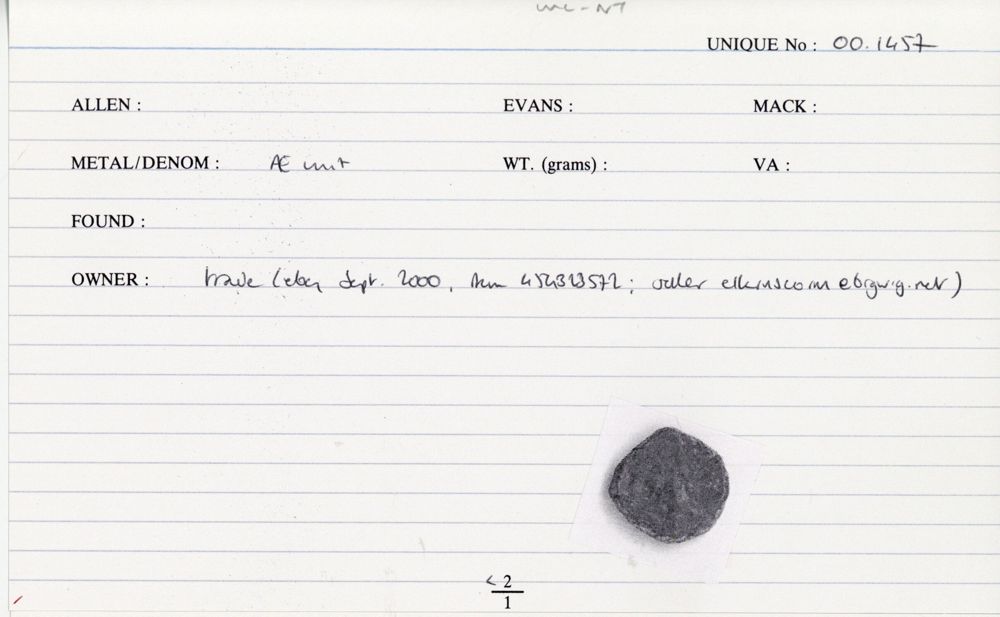 UNIQUE No : 00.1457
ALLEN : EVANS : MACK :
METAL/DENOM : Æ unit WT. (grams) : VA :
FOUND :
OWNER : trade (ebay Sept. 2000, item 454323572; seller
< 2
1